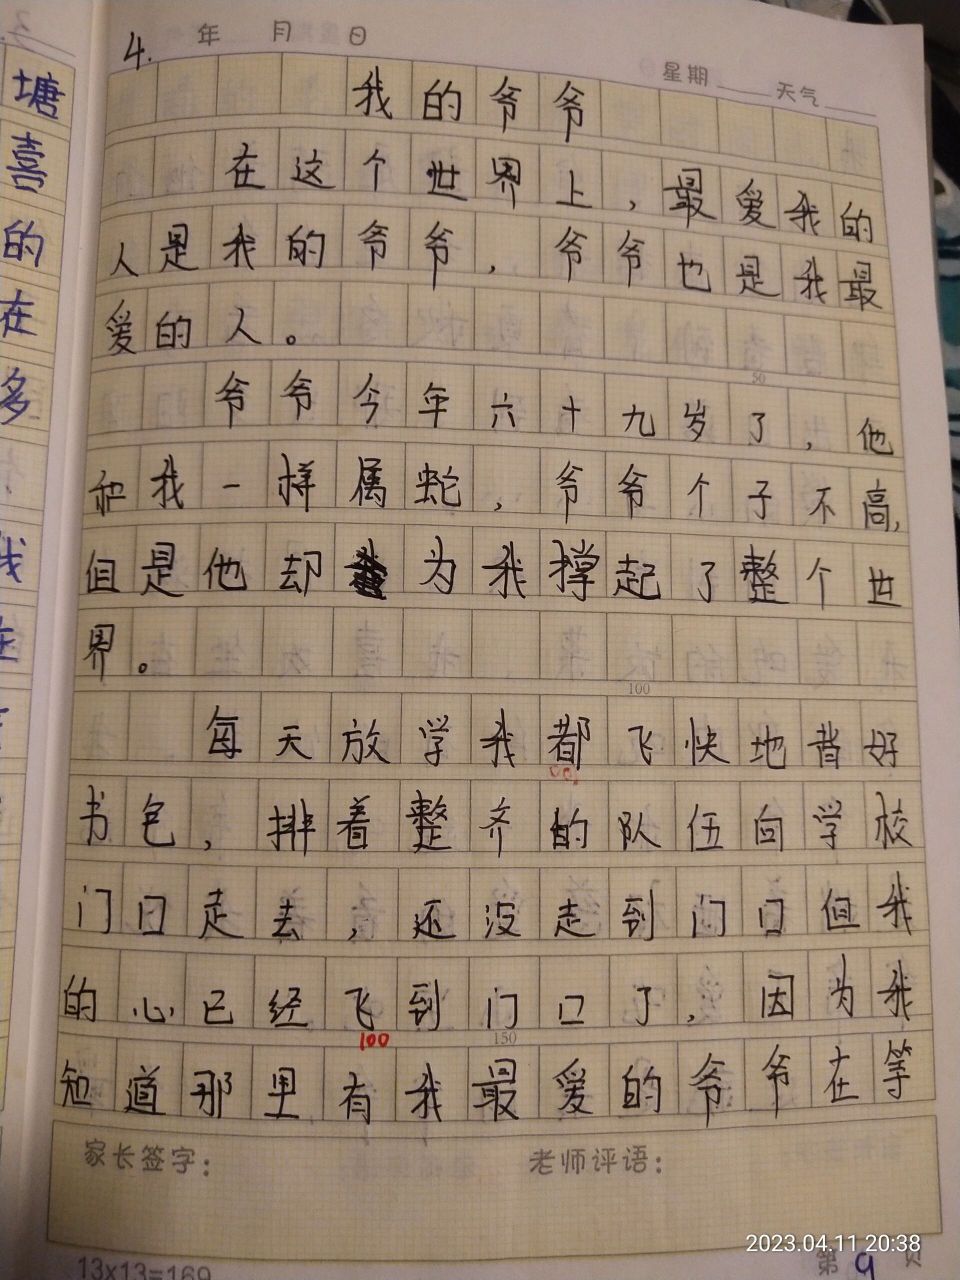 4.
年 月 日
星期 天气
我的爷爷
在这个世界上，最爱我的
人是我的爷爷，爷爷也是我最
爱的人。
50
爷爷今年六十九岁了，他
和我一样属蛇，爷爷个子不高，
但是他却为我撑起了整个世
界。
100
每天放学我都飞快地背好
书包，排着整齐的队伍向学校
门口走去，还没走到门口但我
的心已经飞到门口了，因为我
100
150
知道那里有我最爱的爷爷在等
家长签字： 老师评语：
13x13=169
第9页
2023.04.11 20:38
塘
喜
的
在
多